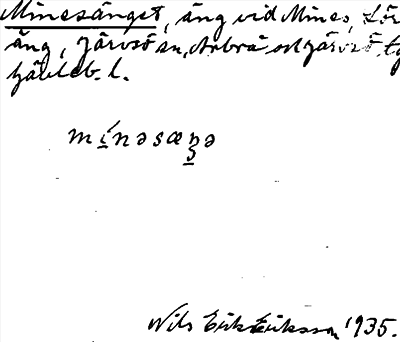 Minesänget, äng vid Mines, Lör
äng, Järvsö sn, Arbrå och Järvsö
Gävleb. l.
mínəsæŋə
Nils Erik Eriksson 1935.